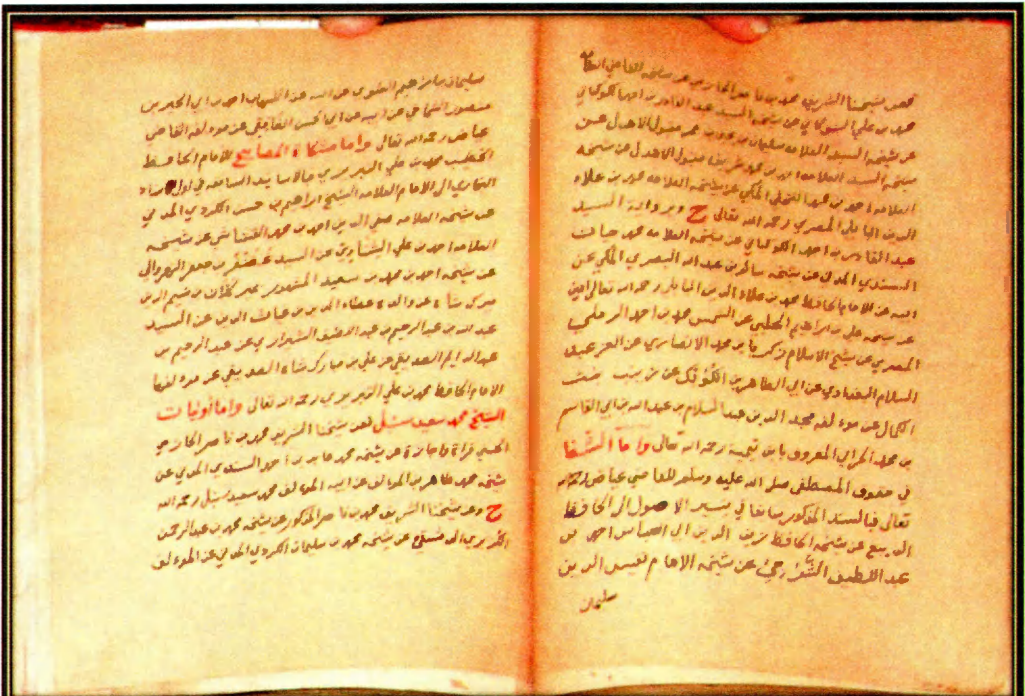 فعن شيخنا الشريف محمد بن ناصر الحازمي عن شيخه القاضي العلامة
محمد بن علي الشوكاني عن شيخه السيد عبد القادر بن احمد الكوكباني
عن شيخه السيد العلامة سليمان بن يحيى بن عمر مقبول الاهدل عن
شيخه السيد العلامة احمد بن محمد شريف مقبول الاهدل عن شيخه
العلامة احمد بن محمد النخلي المكي عن شيخه العلامة محمد بن علاء
الدين البابلي المصري رحمه الله تعالى ح وبرواية السيد
عبد القادر بن احمد الكوكباني عن شيخه العلامة محمد حيات
السندي المدني عن شيخه سالم بن عبد الله البصري المكي عن
ابيه عن الامام الحافظ محمد بن علاء الدين البابلي رحمه الله تعالى
عن شيخه علي بن ابراهيم الحلبي عن الشمس محمد بن احمد الرملي
المصري عن شيخ الاسلام زكريا بن محمد الانصاري عن العز عبد
السلام البغدادي عن ابي الطاهر بن الكويك عن زينب بنت
الكمال عن مؤلفه مجد الدين عبد السلام بن عبد الله بن ابي القاسم
بن محمد الحراني المعروف بابن تيمية رحمه الله تعالى واما الشفا
في حقوق المصطفى صلى الله عليه وسلم للقاضي عياض رحمه الله
تعالى فبالسند المذكور سابقا في تيسير الاصول الى الحافظ
الديبع عن شيخه الحافظ زين الدين ابي العباس احمد بن
عبد اللطيف الشرجي عن شيخه الامام نفيس الدين
سليمان
سليمان بن ابراهيم العلوي عن ابيه عن الشهاب احمد بن ابي الخير بن
منصور الشماخي عن ابيه عن ابي الحسن الغافقي عن مؤلفه القاضي
عياض رحمه الله تعالى واما مشكاة المصابيح للامام الحافظ
الخطيب محمد بن علي التبريزي فبالاسانيد السابقة في اول
البخاري الى الامام العلامة الشيخ ابراهيم بن حسن الكردي المدني
عن شيخه العلامة صفي الدين احمد بن محمد القشاشي عن شيخه
العلامة احمد بن علي الشناوي عن السيد غضنفر بن جعفر النهروالي
عن شيخه احمد بن محمد بن سعيد المشهور بمير كلان بن
ميرك شاه عن والده عطاء الدين بن غياث الدين عن السيد
عبد الله بن عبد الرحيم بن عبد اللطيف الشيرازي عن عبد الرحيم بن
عبد الكريم الصديقي عن علي بن مبارك شاه الصديقي عن مؤلفها
الامام الحافظ محمد بن علي التبريزي رحمه الله تعالى واما اوليات
الشيخ محمد سعيد سنبل فعن شيخنا الشريف محمد بن ناصر الحازمي
الحسني قراة واجازة عن شيخه محمد عابد بن احمد السندي المدني عن
شيخه محمد طاهر بن المؤلف عن ابيه المؤلف محمد سعيد سنبل رحمه الله
ح وعن شيخنا الشريف محمد بن ناصر المذكور عن شيخه محمد بن عبد الرحمن
الكزبري الدمشقي عن شيخه محمد بن سليمان الكردي المدني عن المؤلف